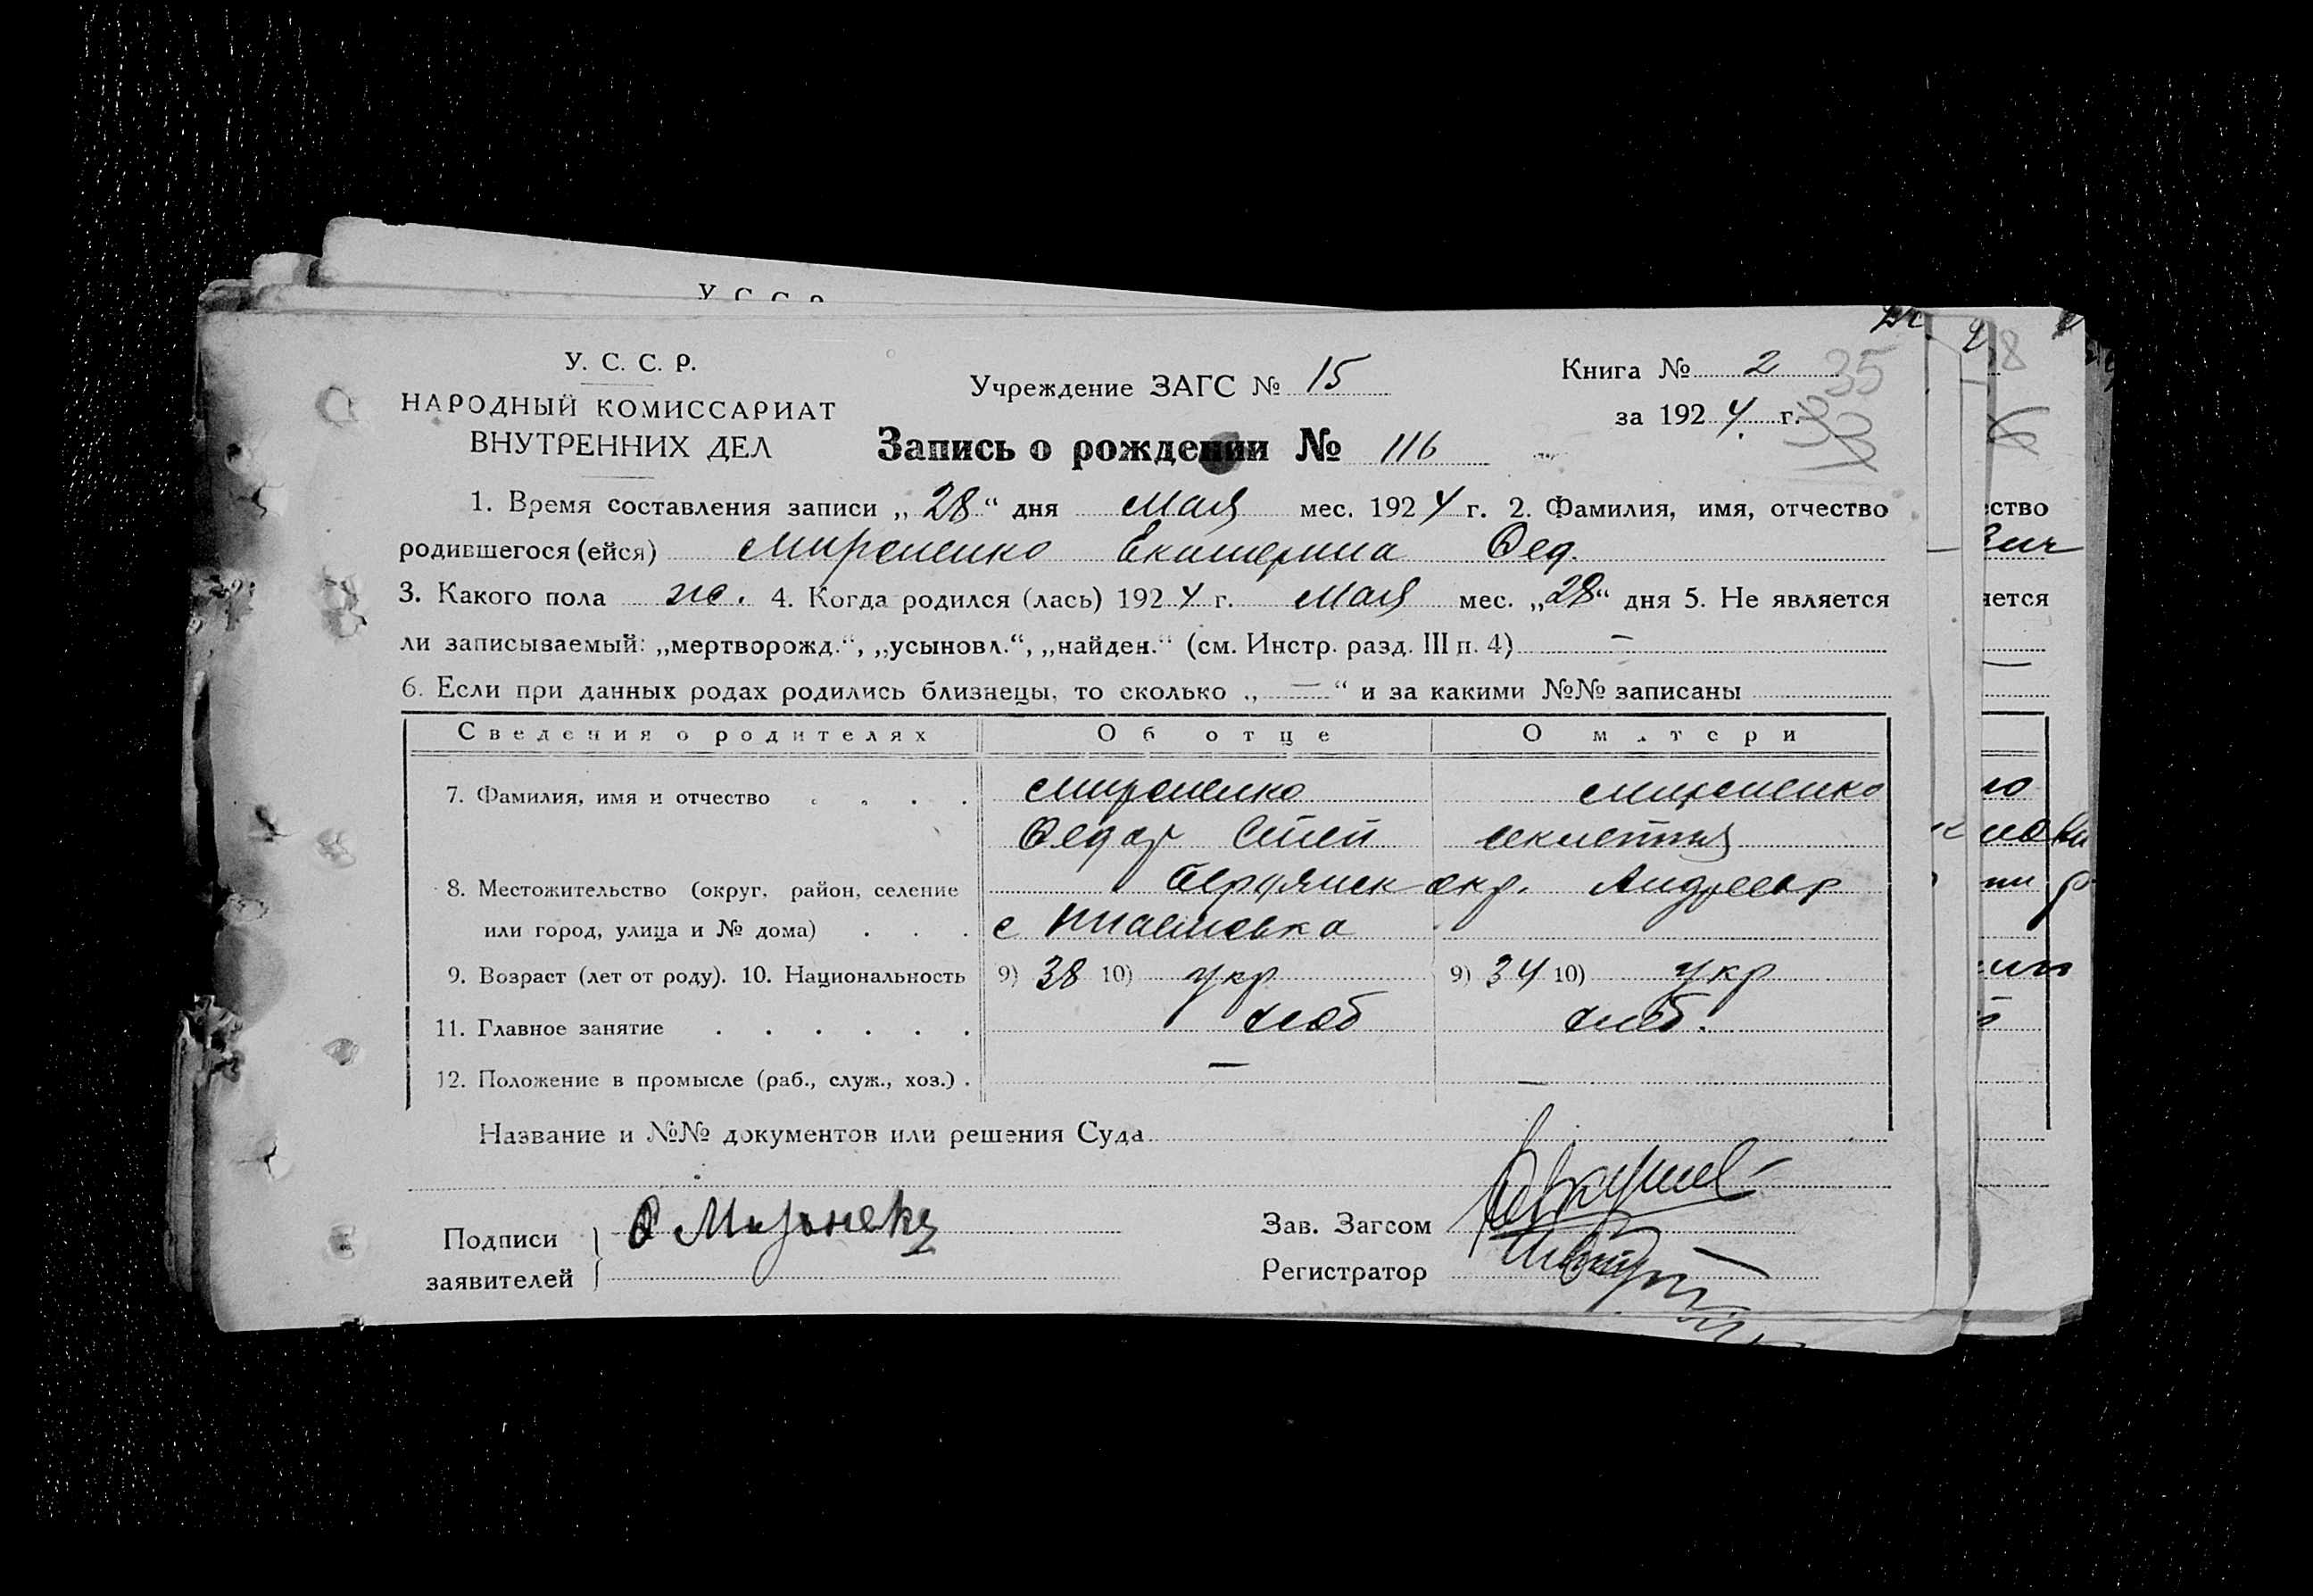 У. С. С. Р.
У. С. С. Р.
НАРОДНЫЙ КОМИССАРИАТ
ВНУТРЕННИХ ДЕЛ
Учреждение ЗАГС № 15
Книга № 2
35
за 1924 г.
33
Запись о рождении № 116
1. Время составления записи „28“ дня Мая мес. 1924 г. 2. Фамилия, имя, отчество
родившегося (ейся) Мироненко Екатерина Фед.
3. Какого пола ж. 4. Когда родился (лась) 1924 г. Мая мес. „28“ дня 5. Не является
ли записываемый: „мертворожд.“, „усыновл.“, „найден.“ (см. Инстр. разд. III п. 4) —
6. Если при данных родах родились близнецы, то сколько „ — “ и за какими №№ записаны
Сведения о родителях Об отце О матери
7. Фамилия, имя и отчество . . . . Мироненко Мироненко
Федор Степ
8. Местожительство (округ, район, селение Бердянск окр. Андреевр
или город, улица и № дома) . . . с
9. Возраст (лет от роду). 10. Национальность 9) 38 10) укр 9) 34 10) укр
11. Главное занятие . . . . . . хлеб хлеб.
12. Положение в промысле (раб., служ., хоз.) . — —
Название и №№ документов или решения Суда
Подписи
заявителей
Зав. Загсом
Регистратор